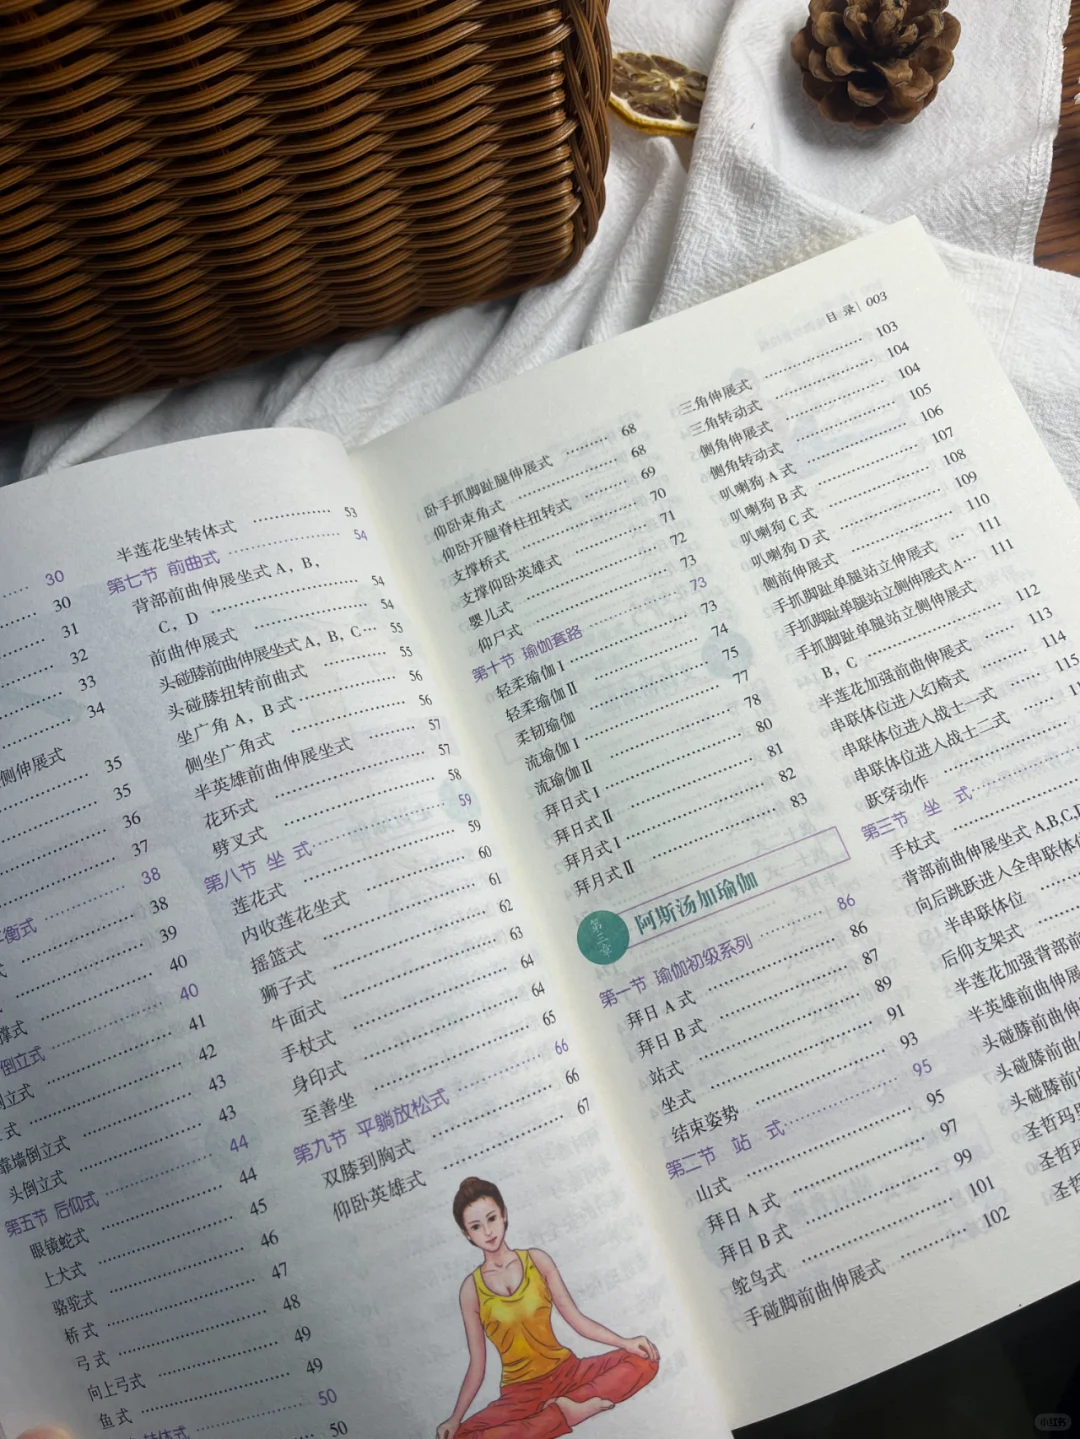 30
30
31
32
33
34
侧伸展式 35
35
36
37
衡式 38
式 38
39
撑式 40
倒立式 40
倒立式 41
式 42
靠墙倒立式 43
头倒立式 43
第五节 后仰式 44
眼镜蛇式 44
上犬式 45
骆驼式 46
桥式 47
弓式 48
向上弓式 49
鱼式 49
转体式 50
50
半莲花坐转体式 53
第七节 前曲式 54
背部前曲伸展坐式 A，B，
C，D 54
前曲伸展式 54
头碰膝前曲伸展坐式 A、B、C 55
头碰膝扭转前曲式 55
坐广角 A，B 式 56
侧坐广角式 56
半英雄前曲伸展坐式 57
花环式 57
劈叉式 58
第八节 坐 式 59
莲花式 59
内收莲花坐式 60
摇篮式 61
狮子式 62
牛面式 63
手杖式 64
身印式 64
至善坐 65
第九节 平躺放松式 66
双膝到胸式 66
仰卧英雄式 67
目 录 | 003
卧手抓脚趾腿伸展式 68
仰卧束角式 68
仰卧开腿脊柱扭转式 69
支撑桥式 70
支撑仰卧英雄式 71
婴儿式 72
仰尸式 73
第十节 瑜伽套路 73
轻柔瑜伽 I 73
轻柔瑜伽 II 74
柔韧瑜伽 75
流瑜伽 I 77
流瑜伽 II 78
拜日式 I 80
拜日式 II 81
拜月式 I 82
拜月式 II 83
第三章 阿斯汤加瑜伽
第一节 瑜伽初级系列 86
拜日 A 式 86
拜日 B 式 87
站式 89
坐式 91
结束姿势 93
第二节 站 式 95
山式 95
拜日 A 式 97
拜日 B 式 99
鸵鸟式 101
手碰脚前曲伸展式 102
三角伸展式 103
三角转动式 104
侧角伸展式 104
侧角转动式 105
叭喇狗 A 式 106
叭喇狗 B 式 107
叭喇狗 C 式 108
叭喇狗 D 式 109
侧前伸展式 110
手抓脚趾单腿站立伸展式 111
手抓脚趾单腿站立侧伸展式 A 111
手抓脚趾单腿站立侧伸展式
B，C 112
半莲花加强前曲伸展式 113
串联体位进入幻椅式 114
串联体位进入战士一式 115
串联体位进入战士二式
跃穿动作
第三节 坐 式
手杖式
背部前曲伸展坐式 A,B,C,D
向后跳跃进入全串联体位
半串联体位
后仰支架式
半莲花加强背部前
半英雄前曲伸展
头碰膝前曲伸展
头碰膝前曲伸
头碰膝前曲
圣哲玛里
圣哲玛
圣哲
小红书